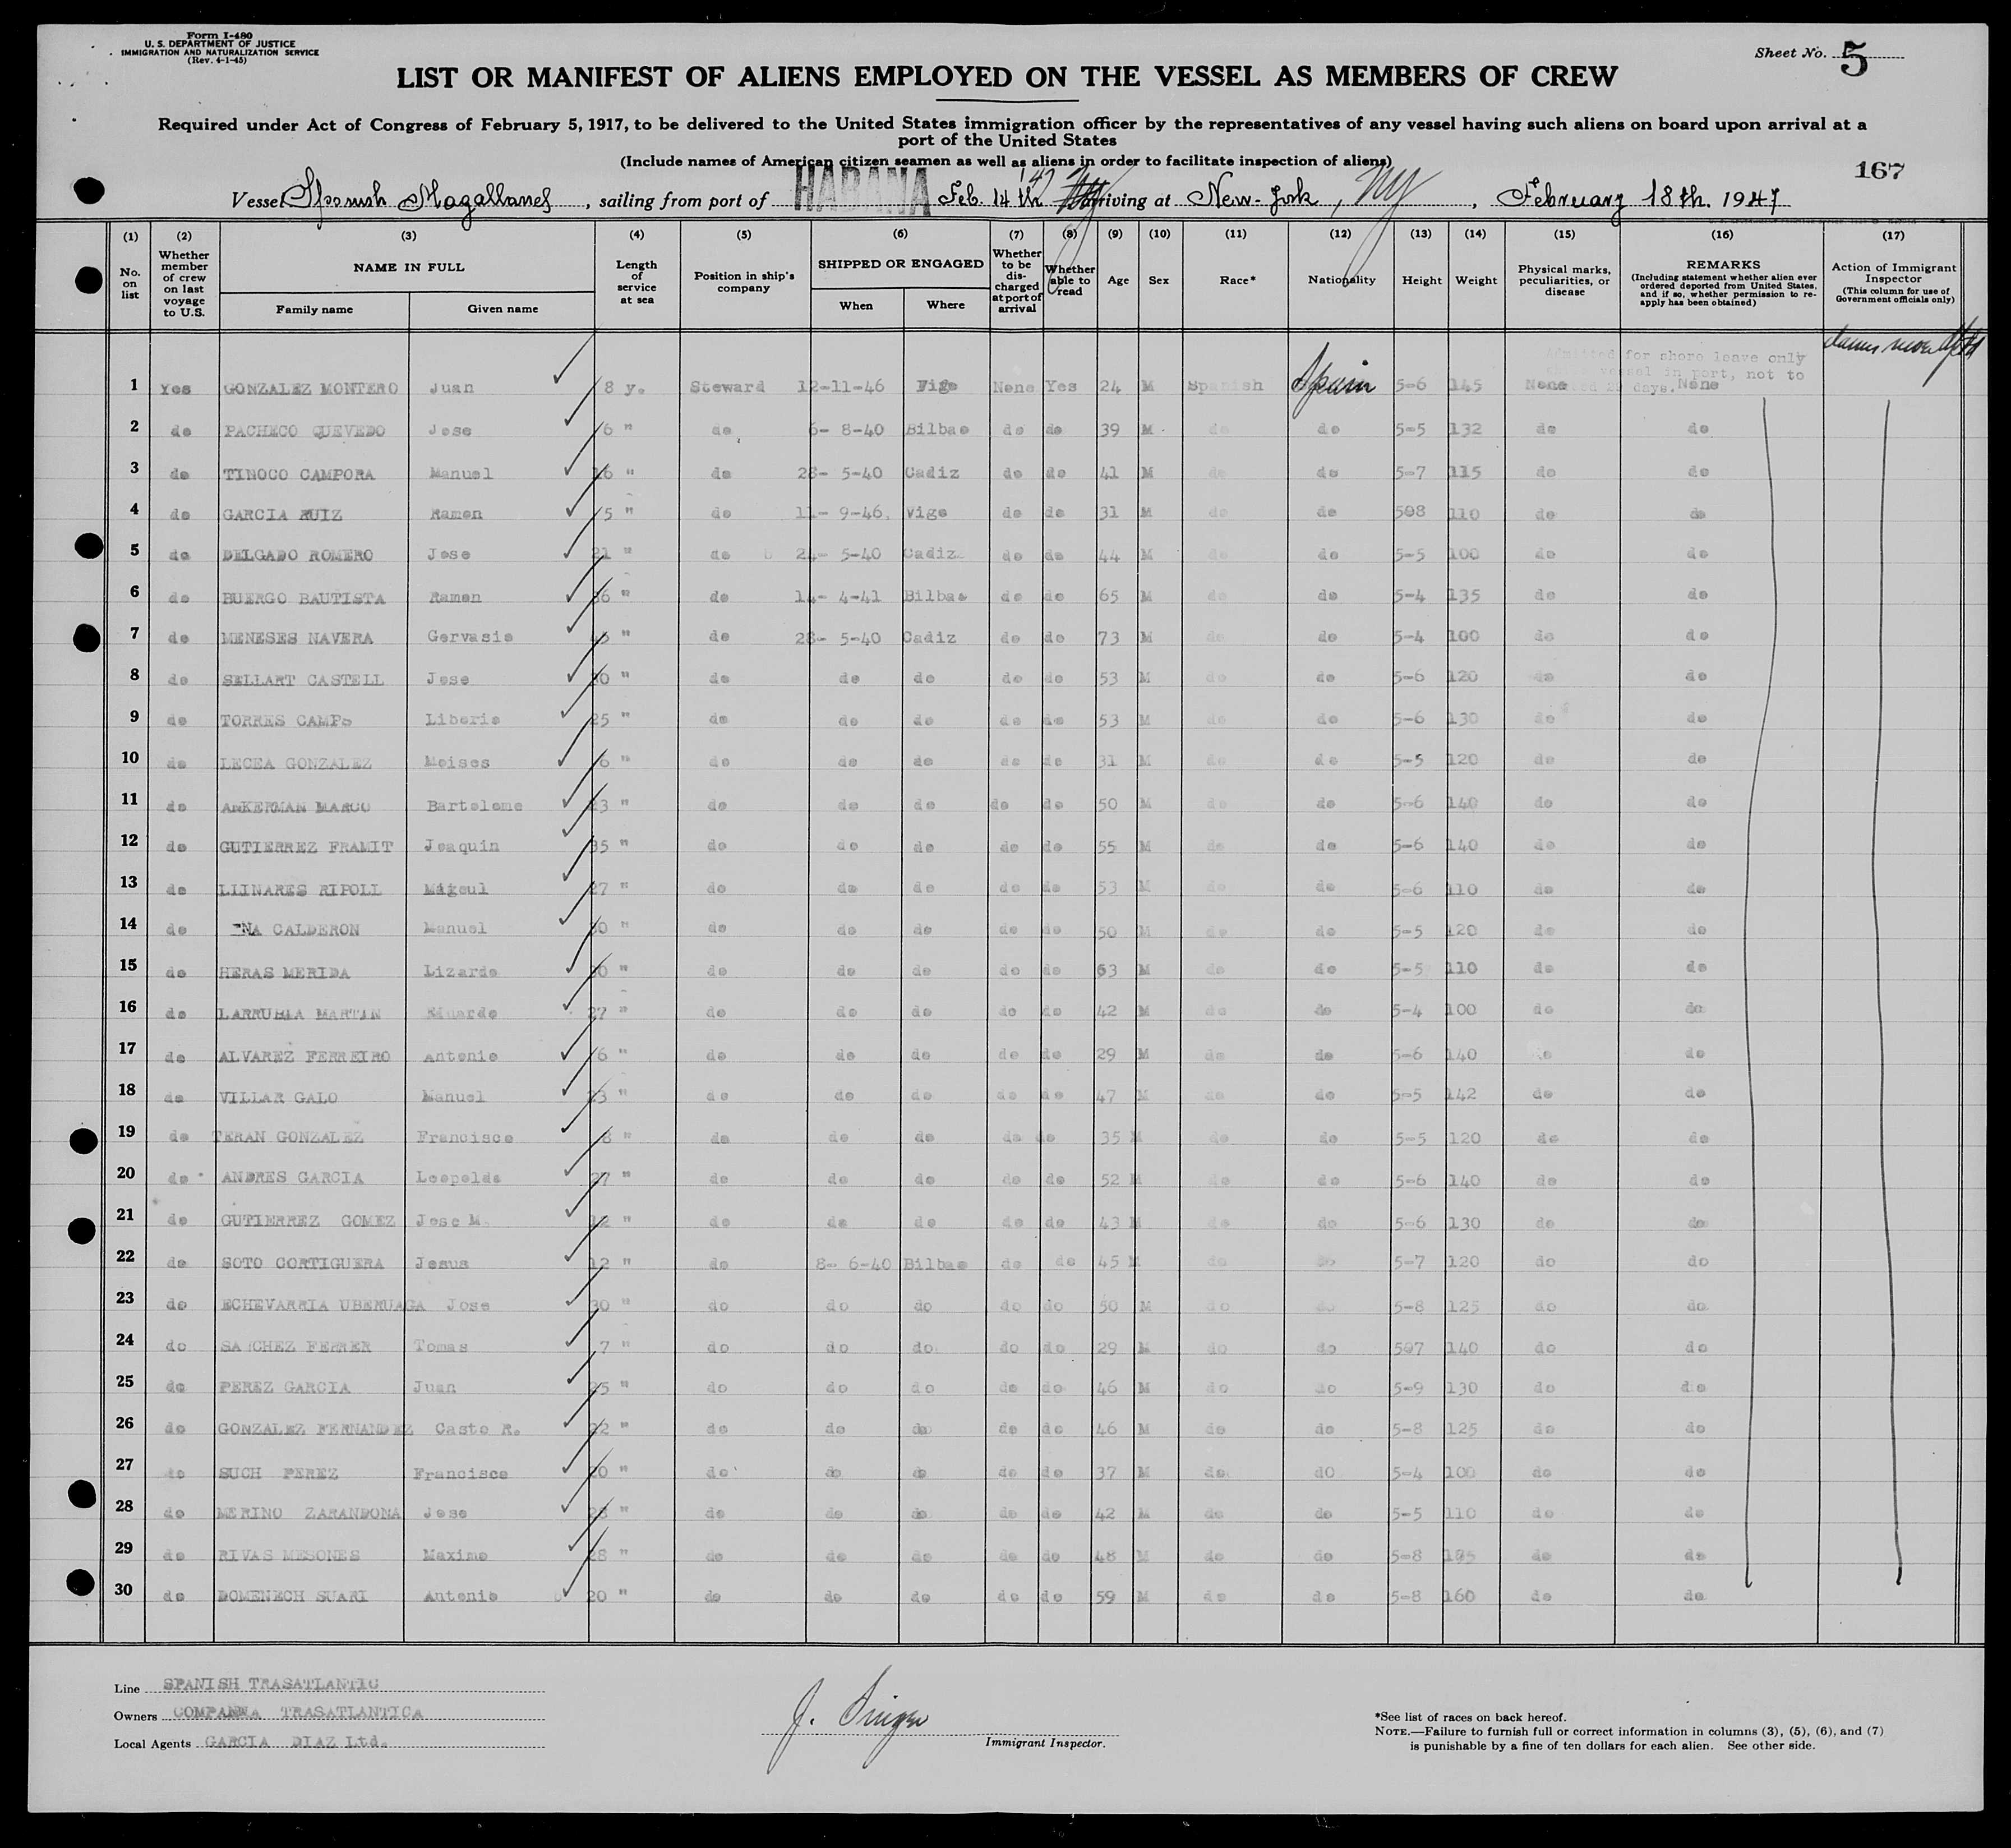 Form I-480
U. S. DEPARTMENT OF JUSTICE
IMMIGRATION AND NATURALIZATION SERVICE
(Rev. 4-1-45)
Sheet No. 5
LIST OR MANIFEST OF ALIENS EMPLOYED ON THE VESSEL AS MEMBERS OF CREW
Required under Act of Congress of February 5, 1917, to be delivered to the United States immigration officer by the representatives of any vessel having such aliens on board upon arrival at a
port of the United States
(Include names of American citizen seamen as well as aliens in order to facilitate inspection of aliens)
167
Vessel Spanish Magallanes, sailing from port of HABANA Feb. 14th arriving at New-York, NY, February 18th. 1947
(1) (2) (3) (4) (5) (6) (7) (8) (9) (10) (11) (12) (13) (14) (15) (16) (17)
No. on list
Whether member of crew on last voyage to U.S.
NAME IN FULL
Family name
Given name
Length of service at sea
Position in ship's company
SHIPPED OR ENGAGED
When
Where
Whether to be discharged at port of arrival
Whether able to read
Age
Sex
Race*
Nationality
Height
Weight
Physical marks, peculiarities, or disease
REMARKS
(Including statement whether alien ever ordered deported from United States, and if so, whether permission to re-apply has been obtained)
Action of Immigrant Inspector
(This column for use of Government officials only)
Admitted for shore leave only
vessel in port, not to
days.
1 Yes GONZALEZ MONTERO Juan 8 y. Steward 12-11-46 Vigo None Yes 24 M Spanish Spain 5-6 145 None None
2 do PACHECO QUEVEDO Jose 6 " do 6- 8-40 Bilbao do do 39 M do do 5-5 132 do do
3 do TINOCO CAMPORA Manuel 16 " do 28- 5-40 Cadiz do do 41 M do do 5-7 115 do do
4 do GARCIA RUIZ Ramon 5 " do 11- 9-46. Vigo do do 31 M do do 508 110 do do
5 do DELGADO ROMERO Jose 21 " do 24- 5-40 Cadiz do do 44 M do do 5-5 100 do do
6 do BUERGO BAUTISTA Ramon 36 " do 14- 4-41 Bilbao do do 65 M do do 5-4 135 do do
7 do MENESES NAVERA Gervasio 45 " do 28- 5-40 Cadiz do do 73 M do do 5-4 100 do do
8 do SELLART CASTELL Jose " do do do do do 53 M do do 5-6 120 do do
9 do TORRES CAMPS Liborio 25 " do do do do do 53 M do do 5-6 130 do do
10 do LECEA GONZALEZ Moises 6 " do do do do do 31 M do do 5-5 120 do do
11 do ANKERMAN MARCO Bartolome 23 " do do do do do 50 M do do 5-6 140 do do
12 do GUTIERREZ FRAMIT Joaquin 35 " do do do do do 55 M do do 5-6 140 do do
13 do LIINARES RIPOLL Migeul 27 " do do do do do 53 M do do 5-6 110 do do
14 do NA CALDERON Manuel " do do do do do 50 M do do 5-5 120 do do
15 do HERAS MERIDA Lizardo " do do do do do 63 M do do 5-5 110 do do
16 do LARRUBIA MARTIN Eduardo 27 " do do do do do 42 M do do 5-4 100 do do
17 do ALVAREZ FERREIRO Antonio 6 " do do do do do 29 M do do 5-6 140 do do
18 do VILLAR GALO Manuel 23 " do do do do do 47 M do do 5-5 142 do do
19 do TERAN GONZALEZ Francisco 8 " do do do do do 35 M do do 5-5 120 do do
20 do ANDRES GARCIA Leopoldo 27 " do do do do do 52 M do do 5-6 140 do do
21 do GUTIERREZ GOMEZ Jose M. 12 " do do do do do 43 M do do 5-6 130 do do
22 do SOTO CORTIGUERA Jesus 12 " do 8- 6-40 Bilbao do do 45 M do do 5-7 120 do do
23 do ECHEVARRIA UBERUAGA Jose 30 " do do do do do 50 M do do 5-8 125 do do
24 do SANCHEZ FERRER Tomas 7 " do do do do do 29 M do do 507 140 do do
25 do PEREZ GARCIA Juan " do do do do do 46 M do do 5-9 130 do do
26 do GONZALEZ FERNANDEZ Casto R. 22 " do do do do do 46 M do do 5-8 125 do do
27 do SUCH PEREZ Francisco 20 " do do do do do 37 M do do 5-4 100 do do
28 do MERINO ZARANDONA Jose " do do do do do 42 M do do 5-5 110 do do
29 do RIVAS MESONES Maximo 28 " do do do do do 48 M do do 5-8 do do
30 do DOMENECH SUARI Antonio 20 " do do do do do 59 M do do 5-8 160 do do
Line SPANISH TRASATLANTIC
Owners COMPANIA TRASATLANTICA
Local Agents GARCIA DIAZ Ltd.
J. Singer
Immigrant Inspector.
*See list of races on back hereof.
NOTE.—Failure to furnish full or correct information in columns (3), (5), (6), and (7)
is punishable by a fine of ten dollars for each alien. See other side.